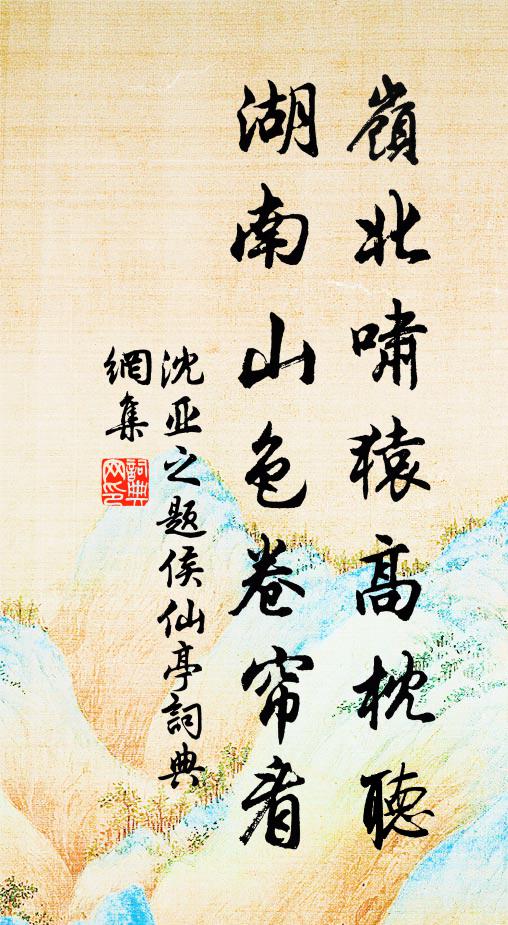 嶺北嘯猿高枕聽
湖南山色卷帘看
沈亚之题侯仙亭詞典
網集
詞典網印